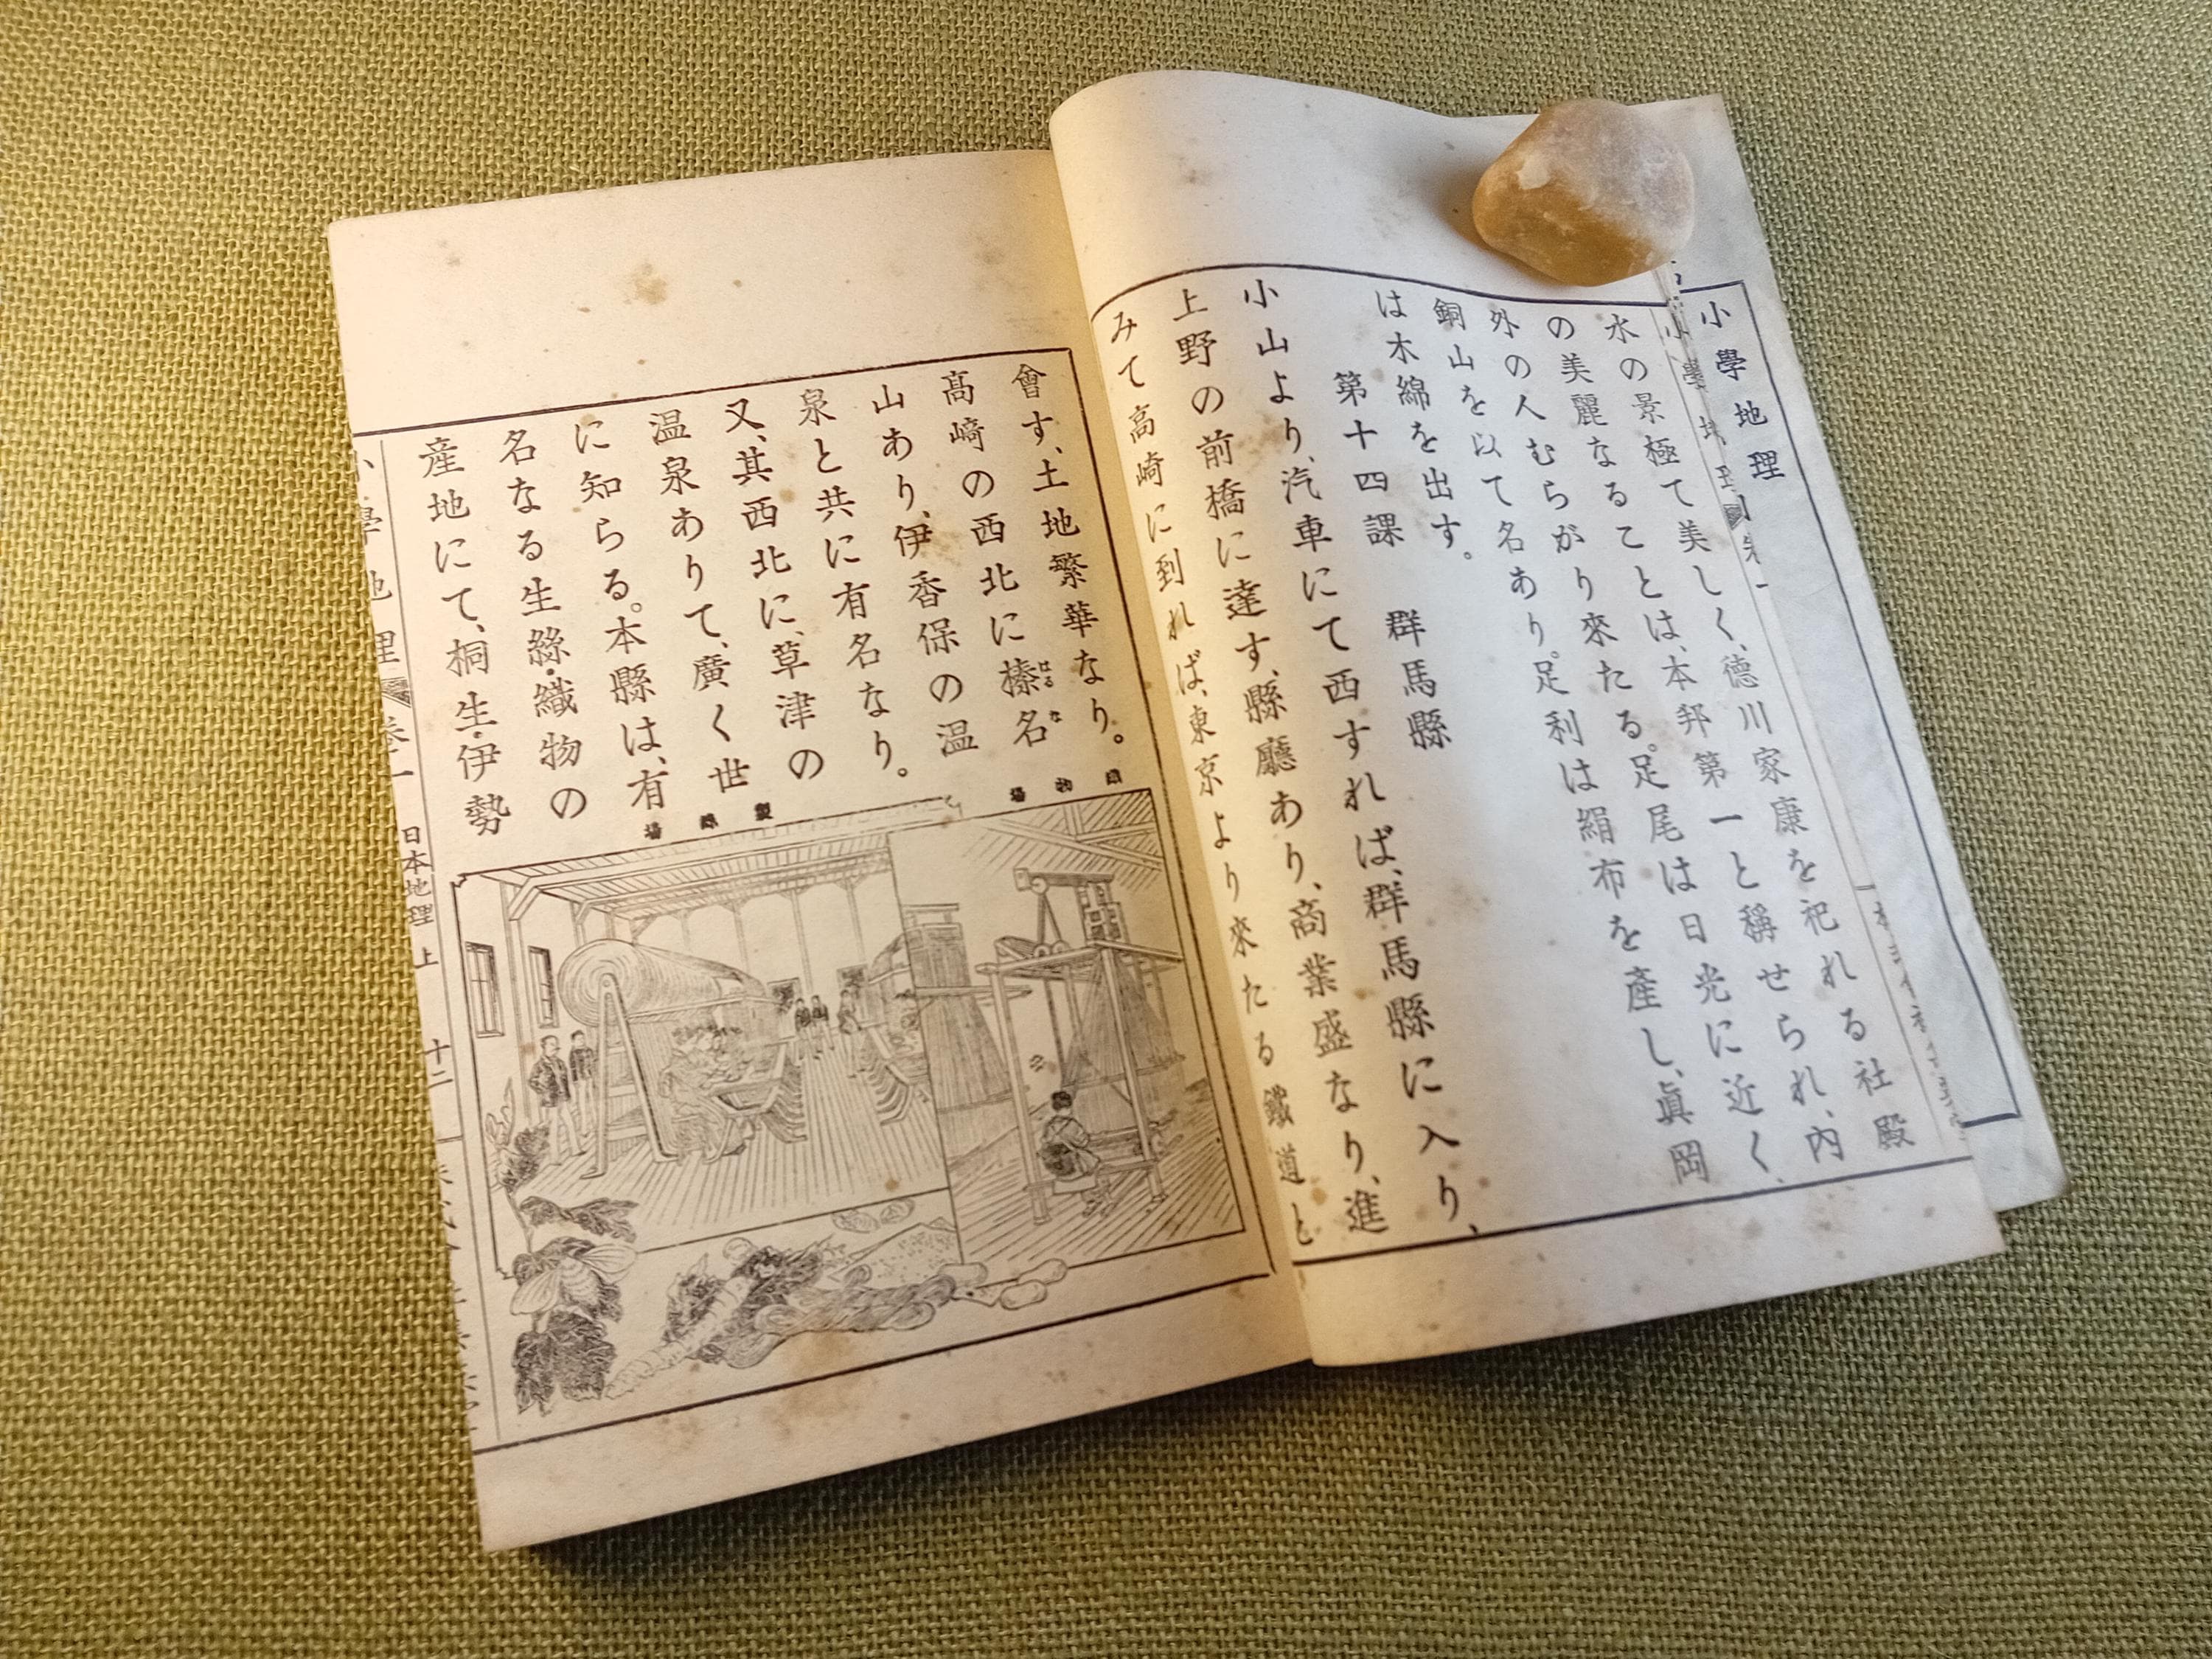 小學地理
水の景極て美しく、德川家康を祀れる社殿
の美麗なることは、本邦第一と稱せられ、內
外の人むらがり來たる。足尾は日光に近く、
銅山を以て名あり。足利は絹布を產し、眞岡
は木綿を出す。
第十四課 群馬縣
小山より、汽車にて西すれば、群馬縣に入り、
上野の前橋に達す、縣廳あり、商業盛なり、進
みて高崎に到れば、東京より來たる鐵道と
會す、土地繁華なり。
高崎の西北に榛名
はるな
山あり、伊香保の温
泉と共に有名なり。
又、其西北に、草津の
温泉ありて、廣く世
に知らる。本縣は、有
名なる生絲・織物の
產地にて、桐生・伊勢
製絲場
日本地理 上
十二